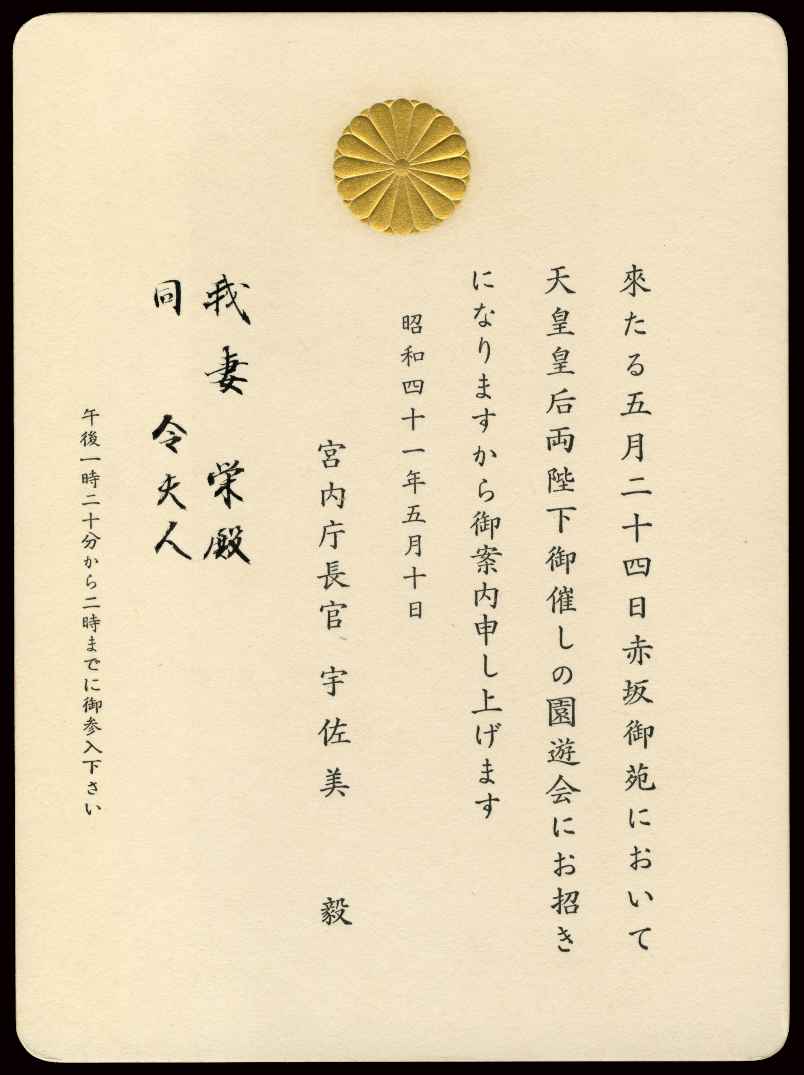 來たる五月二十四日赤坂御苑において
天皇皇后両陛下御催しの園遊会にお招き
になりますから御案内申し上げます
昭和四十一年五月十日
宮内庁長官 宇佐美 毅
我妻 栄殿
同 令夫人
午後一時二十分から二時までに御参入下さい